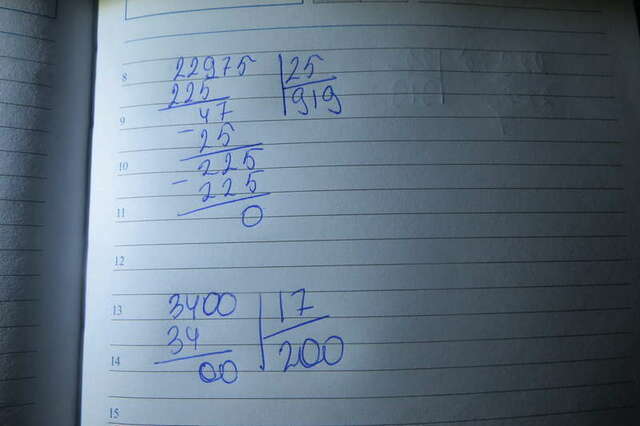 8 22975 25
225 919
9 47
- 25
10 225
- 225
11 0
12
13 3400 17
34 200
14 00
15